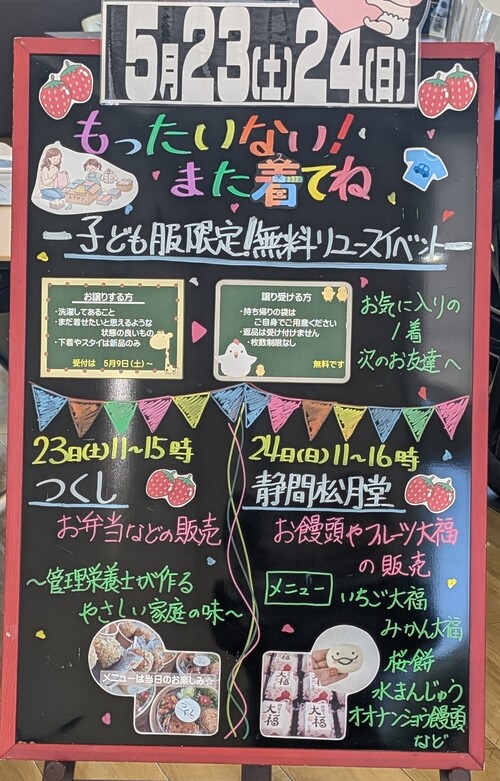 5月23(土)24(日)
もったいない!
また着てね
ー子ども服限定!無料リユースイベントー
お譲りする方
・洗濯してあること
・まだ着せたいと思えるような
状態の良いもの
・下着やスタイは新品のみ
受付は 5月9日(土)～
譲り受ける方
・持ち帰りの袋は
ご自身でご用意ください
・返品は受け付けません
・枚数制限なし
無料です
お気に入りの
1着
次のお友達へ
23日(土)11～15時
つくし
お弁当などの販売
～管理栄養士が作る
やさしい家庭の味～
メニューは当日のお楽しみ☆
24日(日)11～16時
静間松月堂
お饅頭やフルーツ大福
の販売
メニュー
いちご大福
みかん大福
桜餅
水まんじゅう
オオナンショウ饅頭
など
大福